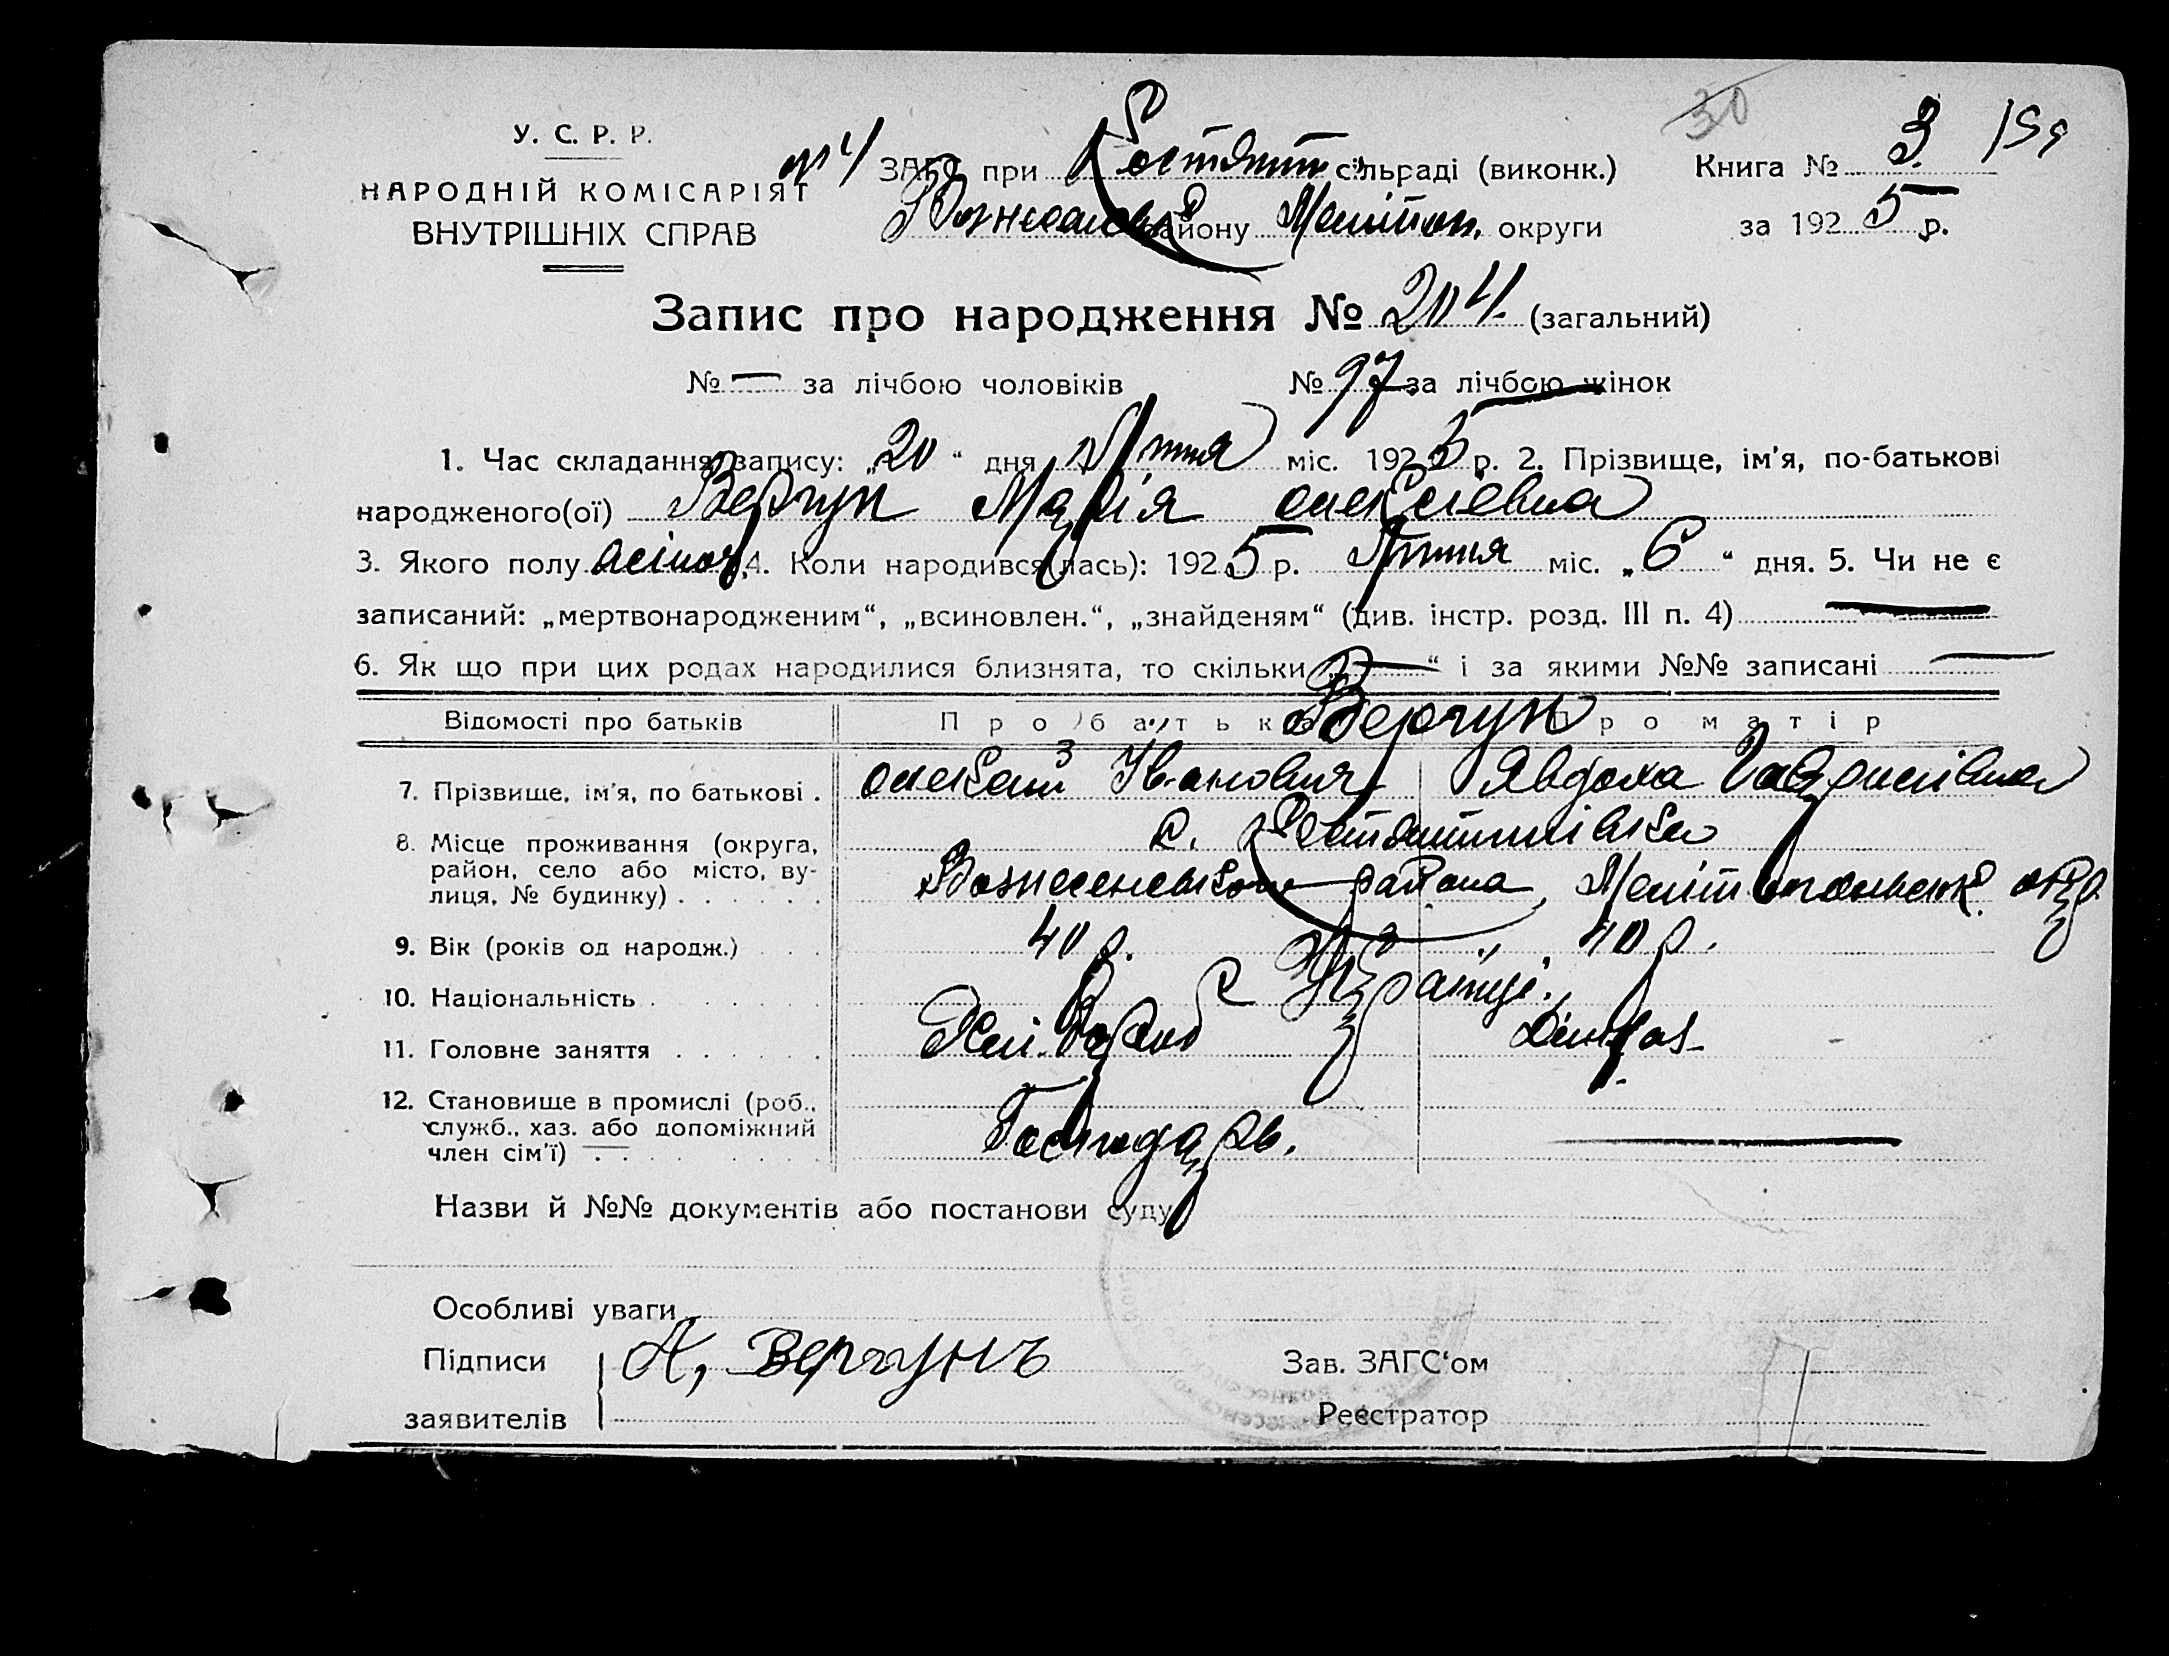 30
У. С. Р. Р.
НАРОДНІЙ КОМІСАРІЯТ
ВНУТРІШНІХ СПРАВ
ЗАГС при Костянт сільраді (виконк.) Книга № 3 159
району Меліто округи за 1925 р.
Запис про народження № 204. (загальний)
№ — за лічбою чоловіків № 97 за лічбою жінок
1. Час складання запису: „20“ дня Липня міс. 1925 р. 2. Прізвище, ім'я, по-батькові
народженого(ої) Вергун Марія Олексіевна
3. Якого полу жіноч. 4. Коли народився(лась): 1925 р. Липня міс. „6“ дня. 5. Чи не є
записаний: „мертвонародженим“, „всиновлен.“, „знайденям“ (див. інстр. розд. III п. 4) —
6. Як що при цих родах народилися близнята, то скільки „—“ і за якими №№ записані —
Відомості про батьків Про батька Вергун Про матір
7. Прізвище, ім'я, по батькові . Олексій Іванович Явдоха Гаврилівна
8. Місце проживання (округа, район, село або місто, вулиця, № будинку) . . . . . . с. Костянтинівка
Вознесенського района, Мелітопольськ. окр.
9. Вік (років од народж.) 40 р. 40 р.
10. Національність . Українці.
11. Головне заняття . . . . . Хлібороб
12. Становище в промислі (роб., служб., хаз. або допоміжний член сім'ї) Господарь. —
Назви й №№ документів або постанови суду
Особливі уваги
Підписи А, Вергунъ Зав. ЗАГС‘ом
заявителів Реєстратор